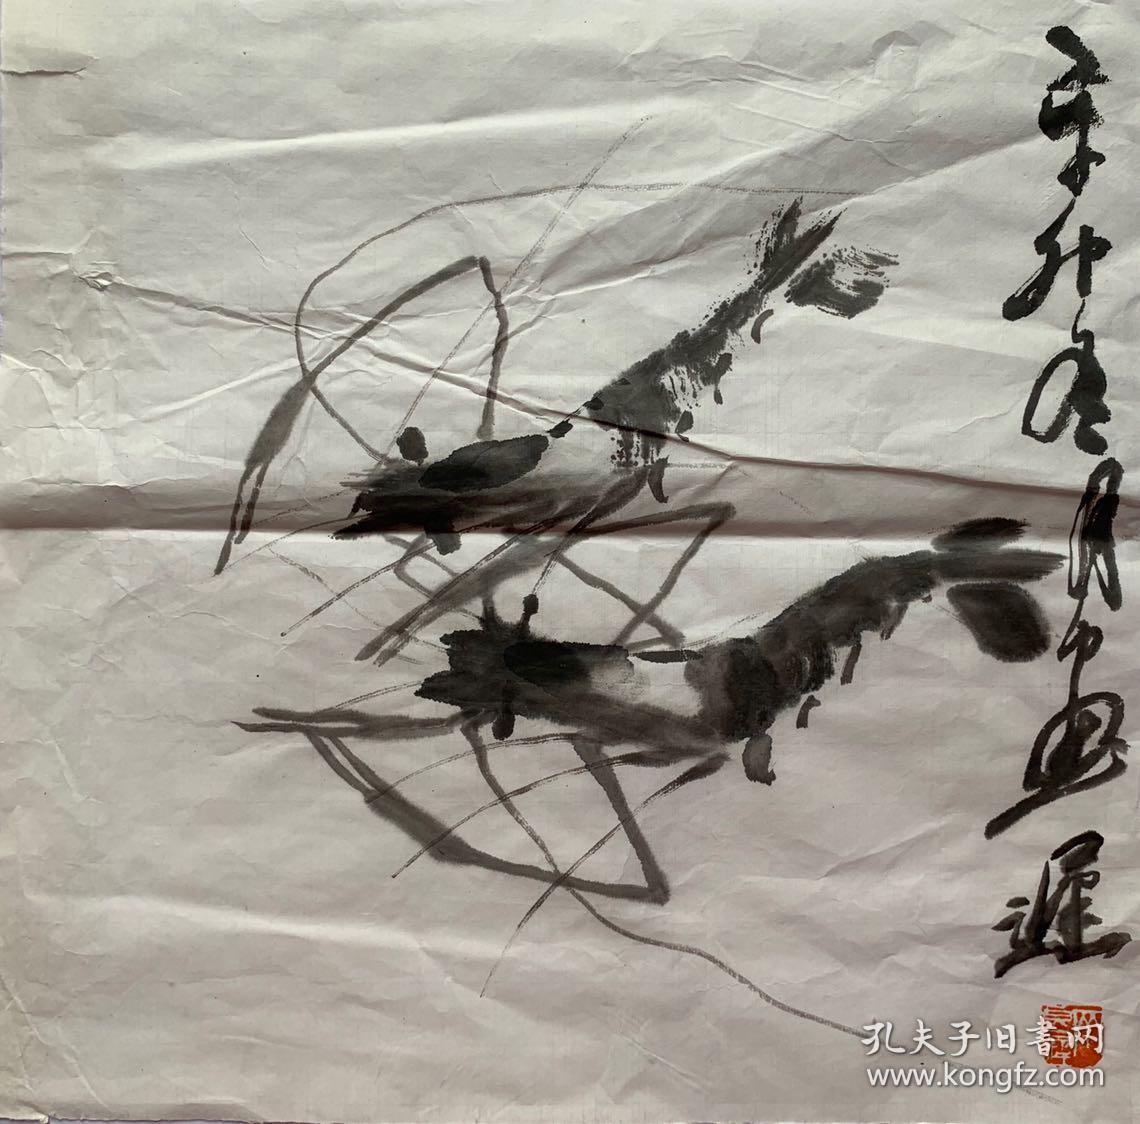 辛酉冬月中画
遲
孔夫子旧書网
www.kongfz.com